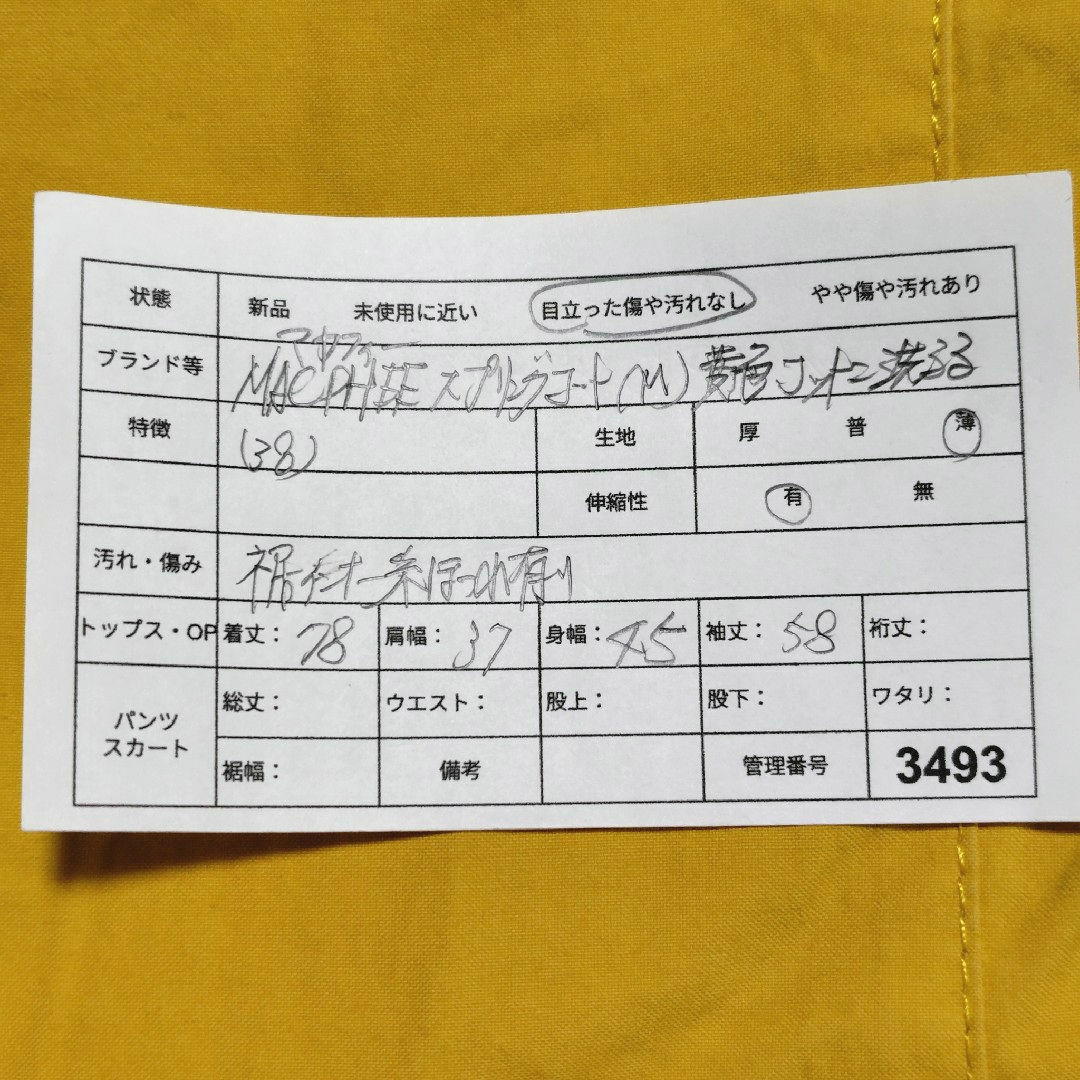 状態 新品 未使用に近い 目立った傷や汚れなし やや傷や汚れあり
マカフィー
ブランド等 MACPHEE スプリングコート(M) 黄色 コットン 洗える
特徴 (38) 生地 厚 普 薄
伸縮性 有 無
汚れ・傷み 裾 糸ほつれ有り
トップス・OP 着丈: 78 肩幅: 37 身幅: 45 袖丈: 58 裄丈:
パンツ 総丈: ウエスト: 股上: 股下: ワタリ:
スカート
裾幅: 備考 管理番号 3493